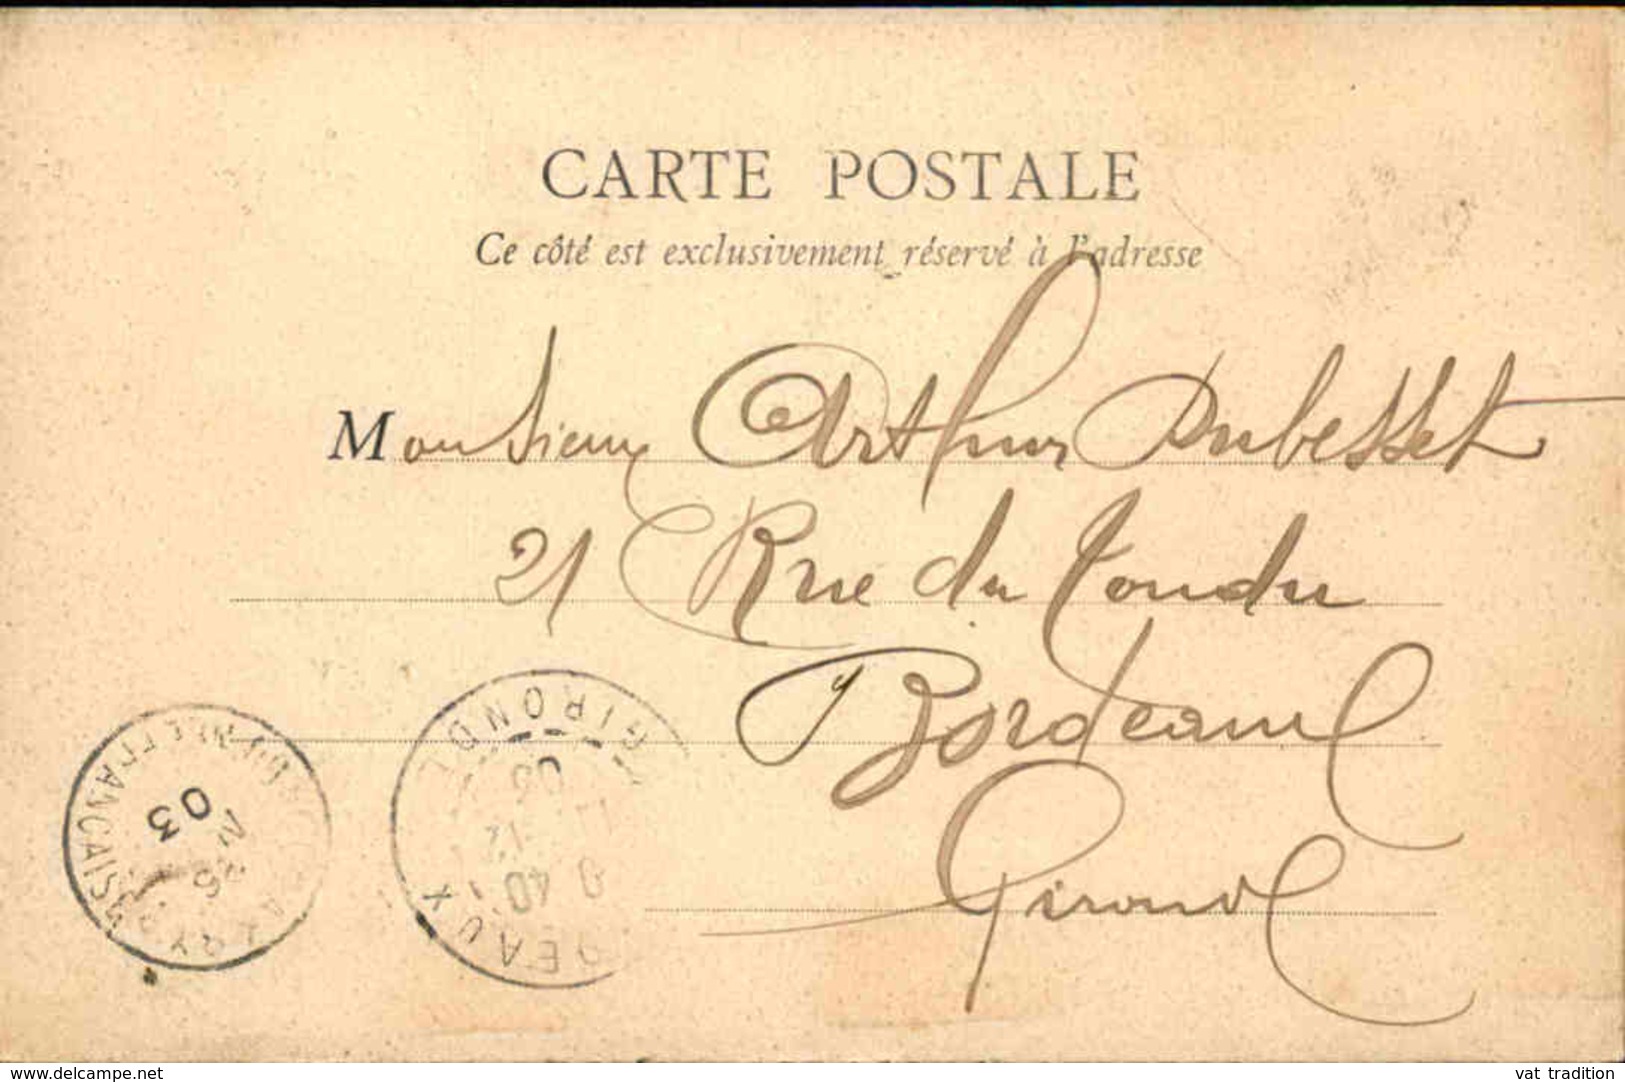 CARTE POSTALE
Ce côté est exclusivement réservé à l'adresse
Monsieur Arthur Dubesset
21 Rue du Tondu
Bordeaux
Gironde
GIRONDE
03
9 40
03
26
FRANCAISE
www.delcampe.net
vat tradition